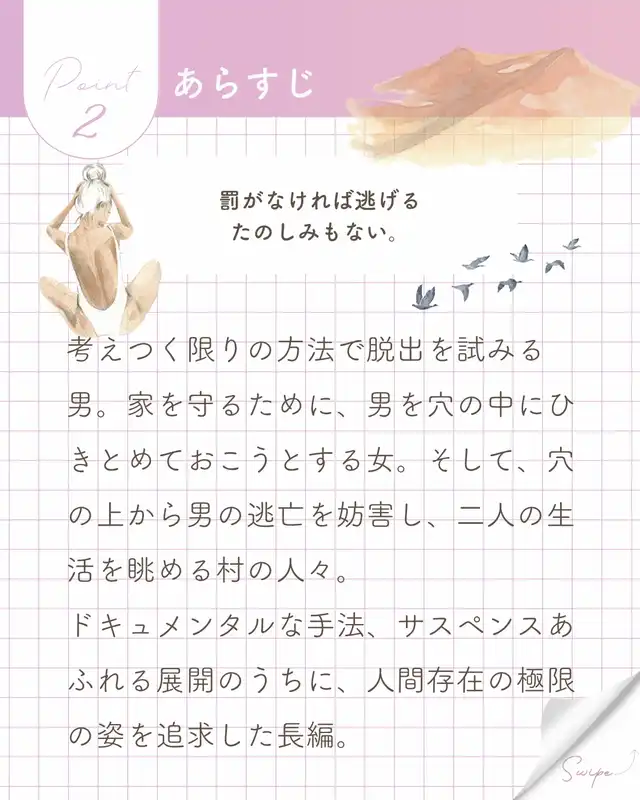 Point
2
あらすじ
罰がなければ逃げる
たのしみもない。
考えつく限りの方法で脱出を試みる
男。家を守るために、男を穴の中にひ
きとめておこうとする女。そして、穴
の上から男の逃亡を妨害し、二人の生
活を眺める村の人々。
ドキュメンタルな手法、サスペンスあ
ふれる展開のうちに、人間存在の極限
の姿を追求した長編。
Swipe